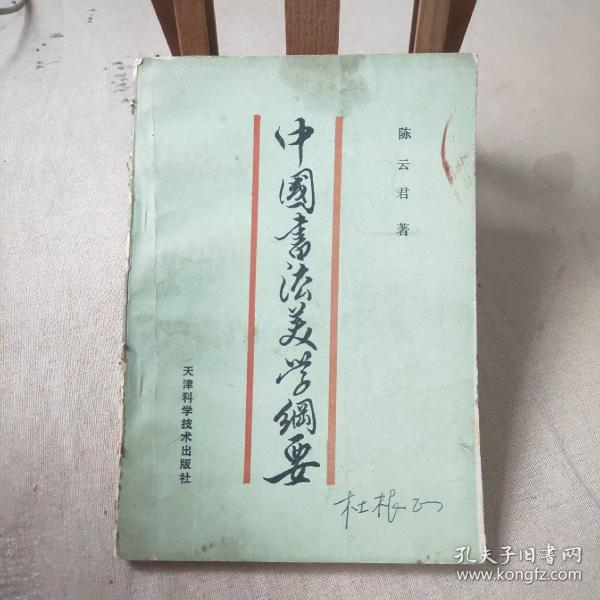 陈云君 著
中國书法美学綱要
天津科学技术出版社
孔夫子旧书网
www.kongfz.com